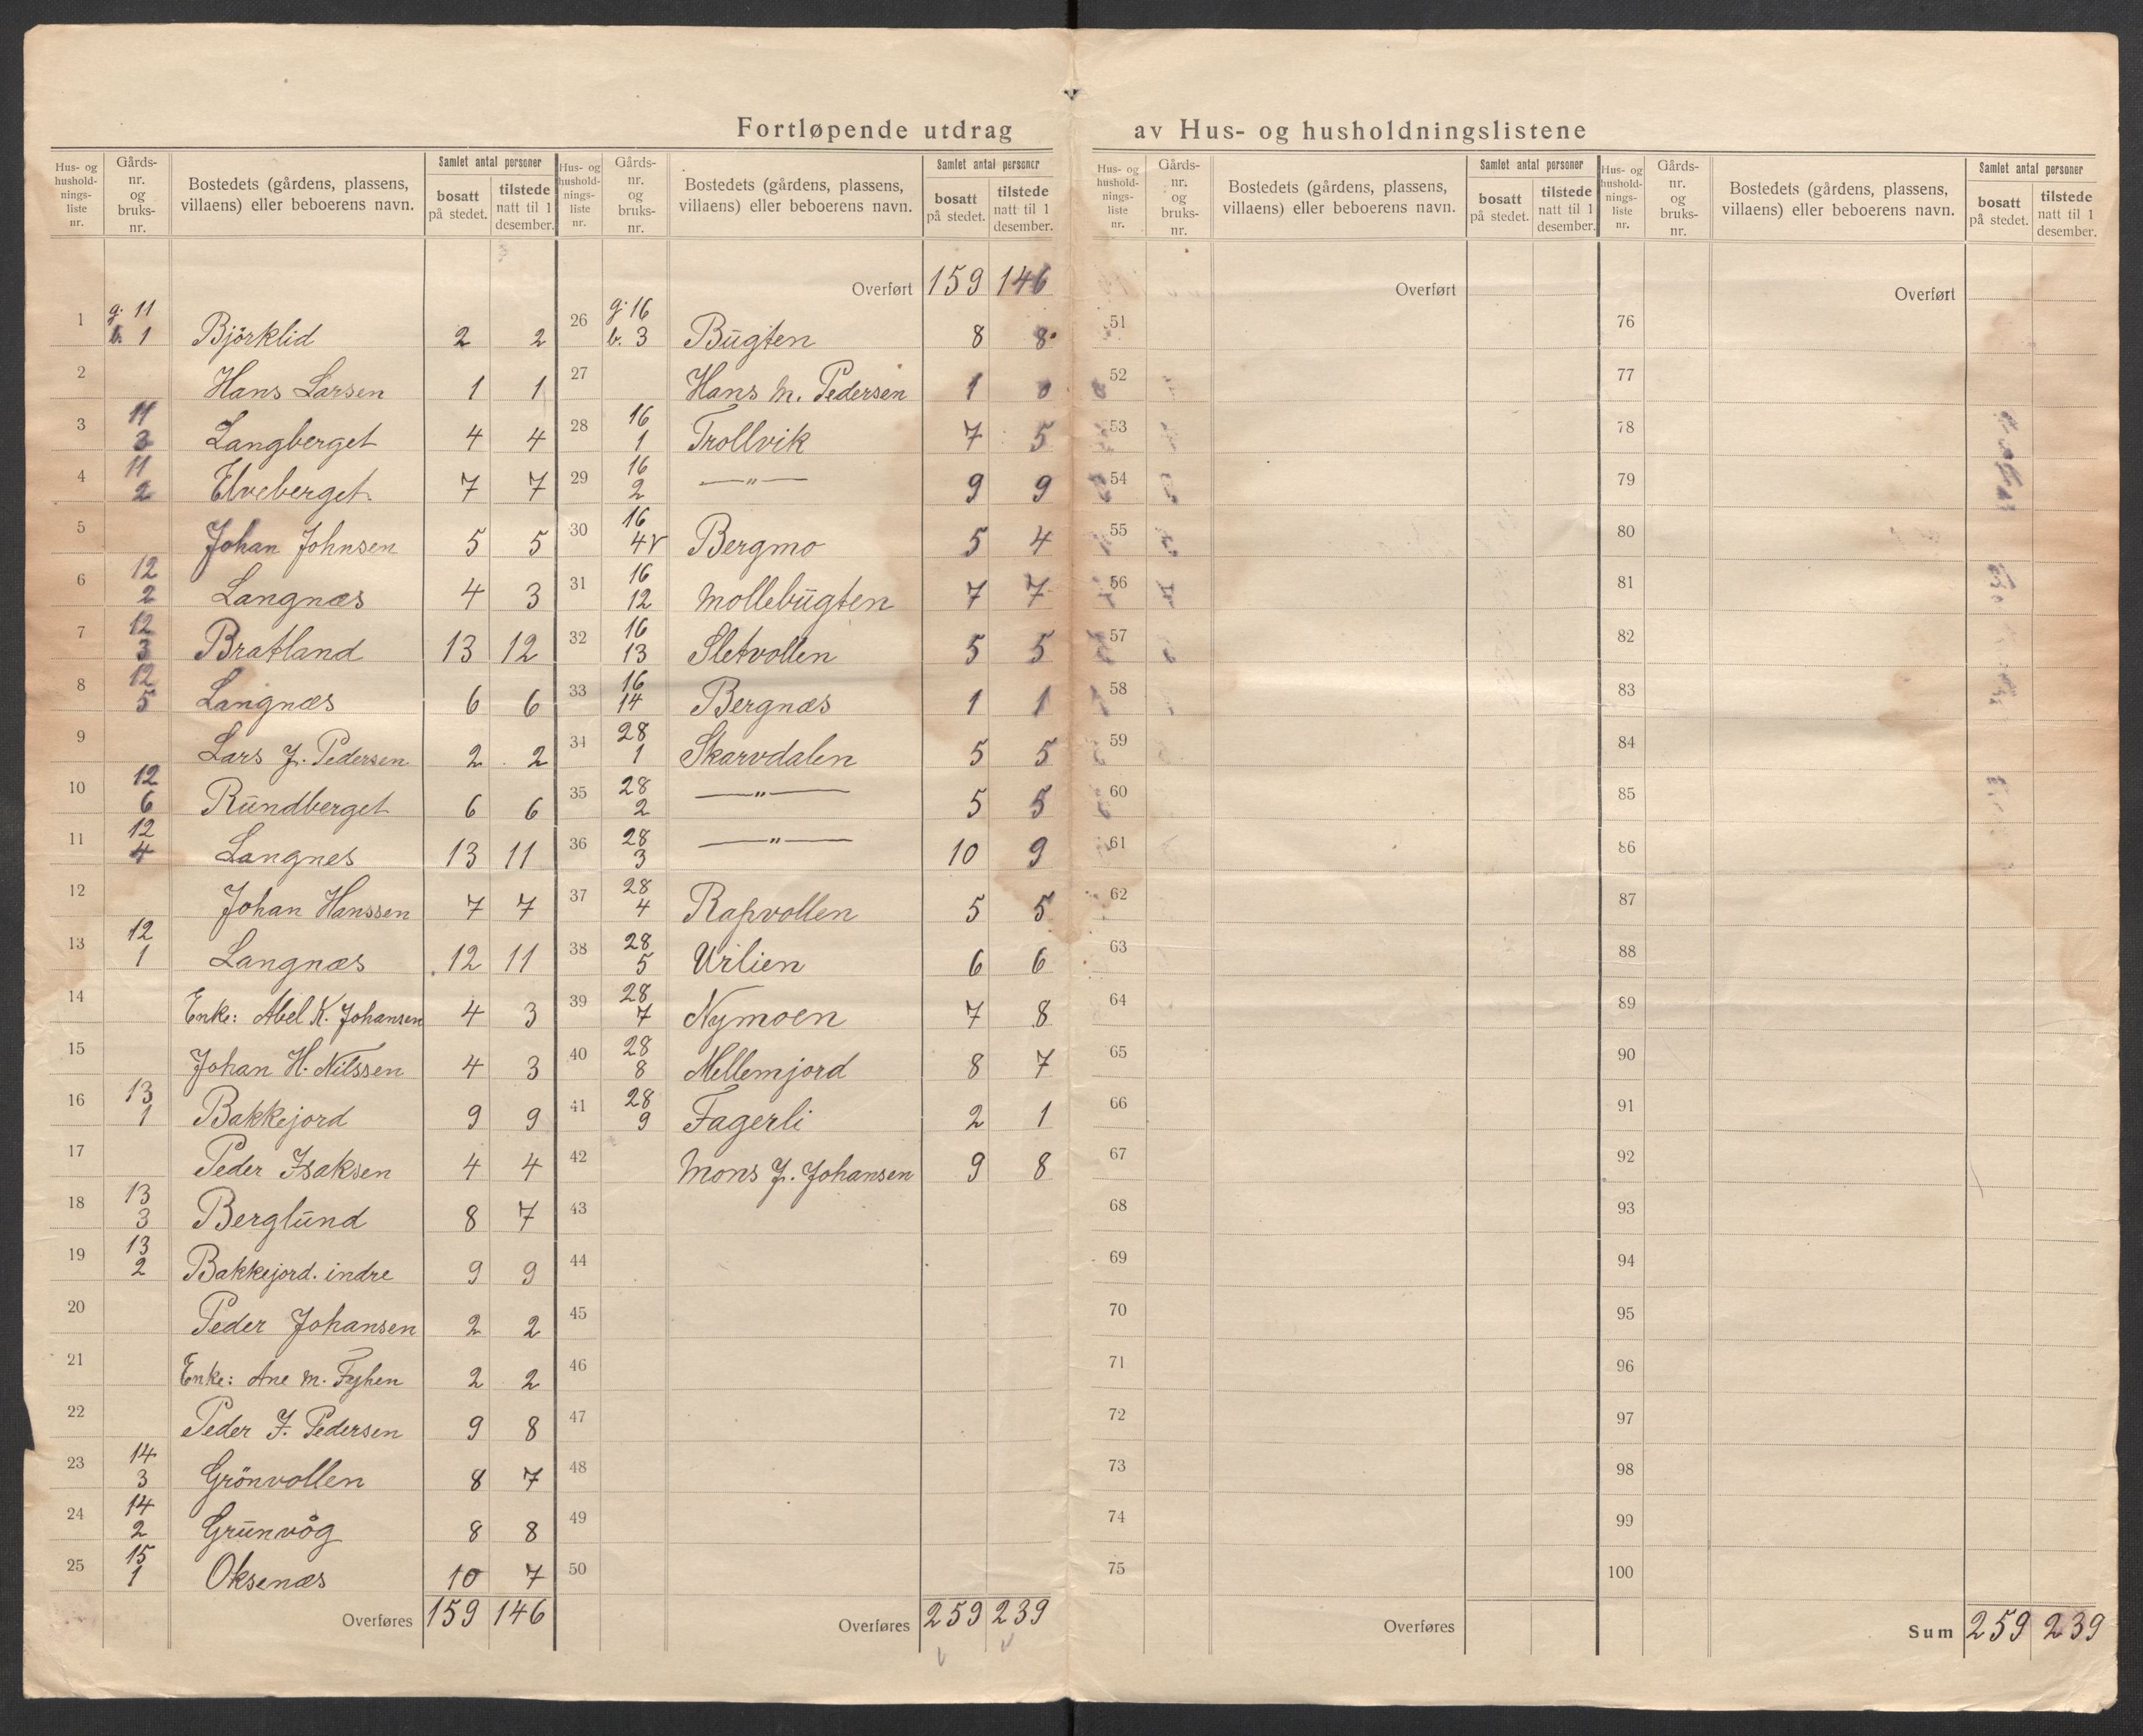 Fortløpende utdrag av Hus- og husholdningslistene
Hus- og husholdningsliste nr. | Gårds-nr. og bruks-nr. | Bostedets (gårdens, plassens, villaens) eller beboerens navn. | Samlet antal personer | bosatt på stedet. | tilstede natt til 1 desember.
1 g. 11 b. 1 Björklid 2 2
2 Hans Larsen 1 1
3 11 3 Langberget 4 4
4 11 2 Elveberget 7 7
5 Johan Johnsen 5 5
6 12 2 Langnæs 4 3
7 12 3 Bratland 13 12
8 12 5 Langnæs 6 6
9 Lars J. Pedersen 2 2
10 12 6 Rundberget 6 6
11 12 4 Langnes 13 11
12 Johan Hanssen 7 7
13 12 1 Langnæs 12 11
14 Enke: Abel K. Johansen 4 3
15 Johan H. Nilssen 4 3
16 13 1 Bakkejord 9 9
17 Peder Isaksen 4 4
18 13 3 Berglund 8 7
19 13 2 Bakkejord. indre 9 9
20 Peder Johansen 2 2
21 Enke: Ane M. 2 2
22 Peder J. Pedersen 9 8
23 14 3 Grönvollen 8 7
24 14 2 Grunvåg 8 8
25 15 1 Oksenæs 10 7
Overføres 159 146
Hus- og husholdningsliste nr. | Gårds-nr. og bruks-nr. | Bostedets (gårdens, plassens, villaens) eller beboerens navn. | Samlet antal personer | bosatt på stedet. | tilstede natt til 1 desember.
Overført 159 146
26 g. 16 b. 3 Bugten 8 8
27 Hans M. Pedersen 1 0
28 16 1 Trollvik 7 5
29 16 2 —"— 9 9
30 16 4 Bergmo 5 4
31 16 12 Mollebugten 7 7
32 16 13 Sletvollen 5 5
33 16 14 Bergnæs 1 1
34 28 1 Skarvdalen 5 5
35 28 2 —"— 5 5
36 28 3 —"— 10 9
37 28 4 Rapvollen 5 5
38 28 5 Urlien 6 6
39 28 7 Nymoen 7 8
40 28 8 Mellemjord 8 7
41 28 9 Fagerli 2 1
42 Mons J. Johansen 9 8
43
44
45
46
47
48
49
50
Overføres 259 239
Hus- og husholdningsliste nr. | Gårds-nr. og bruks-nr. | Bostedets (gårdens, plassens, villaens) eller beboerens navn. | Samlet antal personer | bosatt på stedet. | tilstede natt til 1 desember.
Overført
51
52
53
54
55
56
57
58
59
60
61
62
63
64
65
66
67
68
69
70
71
72
73
74
75
Overføres
Hus- og husholdningsliste nr. | Gårds-nr. og bruks-nr. | Bostedets (gårdens, plassens, villaens) eller beboerens navn. | Samlet antal personer | bosatt på stedet. | tilstede natt til 1 desember.
Overført
76
77
78
79
80
81
82
83
84
85
86
87
88
89
90
91
92
93
94
95
96
97
98
99
100
Sum 259 239